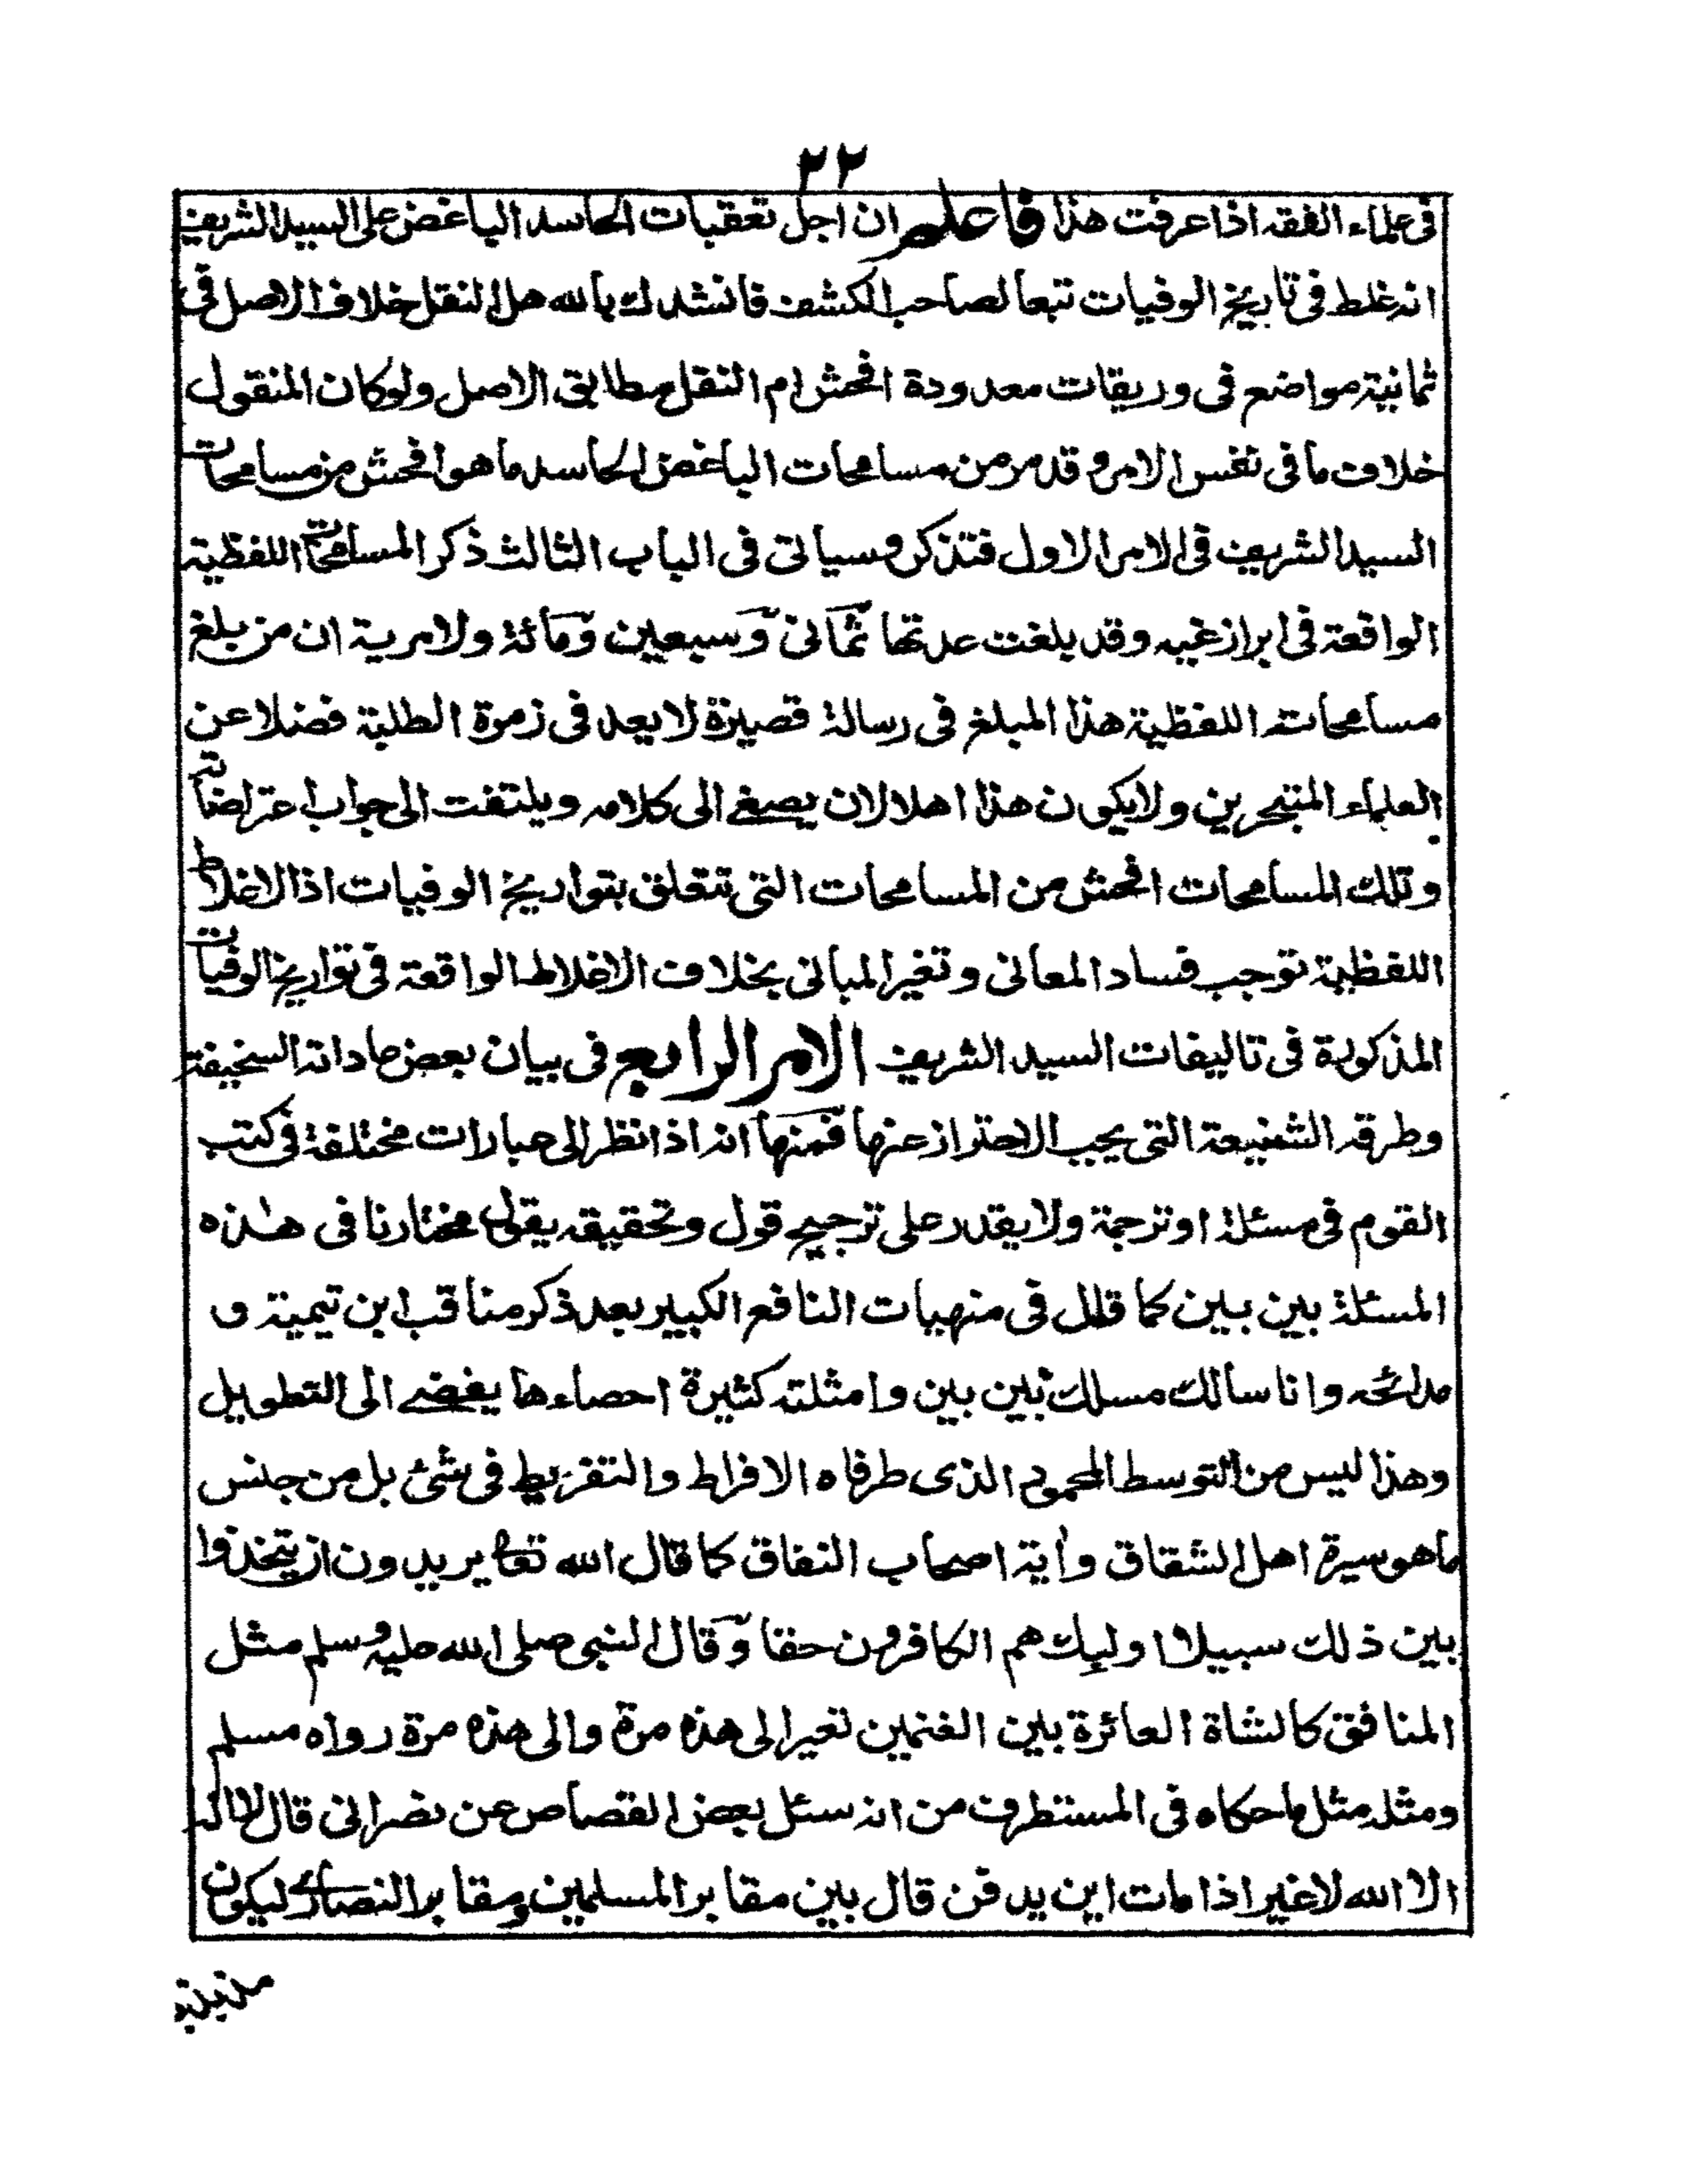 ٢٢
فى علماء الفقه اذا عرفت هذا فاعلم ان اجل تعقبات الحاسد الباغض على السيد الشريف
انه غلط فى تاريخ الوفيات تبعا لصاحب الكشف فانشدك بالله هل النقل خلاف الاصل فى
ثمانية مواضع فى وريقات معدودة افحش ام النقل مطابق الاصل ولو كان المنقول
خلاف ما فى نفس الامر وقد مر من مسامحات الباغض الحاسد ما هو افحش من مسامحات
السيد الشريف فى الامر الاول فتذكر وسياتى فى الباب الثالث ذكر المسامحات اللفظية
الواقعة فى ابراز غيه وقد بلغت عدتها ثمانى وسبعين ومائة ولا مرية ان من بلغ
مسامحاته اللفظية هذا المبلغ فى رسالة قصيرة لا يعد فى زمرة الطلبة فضلا عن
العلماء المتبحرين ولا يكون هذا اهلا لان يصغے الى كلامه ويلتفت الى جواب اعتراضاته
وتلك المسامحات افحش من المسامحات التى تتعلق بتواريخ الوفيات اذ الاغلاط
اللفظية توجب فساد المعانى وتغير المبانى بخلاف الاغلاط الواقعة فى تواريخ الوفيات
المذكورة فى تاليفات السيد الشريف الامر الرابع فى بيان بعض عاداته السخيفة
وطرقه الشنيعة التى يجب الاحتراز عنها فمنها انه اذا نظر الى عبارات مختلفة فى كتب
القوم فى مسئلة او ترجمة ولا يقدر على ترجيح قول وتحقيقه يقول مختارنا فى هذه
المسئلة بين بين كما قال فى منهيات النافع الكبير بعد ذكر مناقب ابن تيمية و
مدائحه وانا سالك مسلك بين بين وامثلته كثيرة احصاءها يفضے الى التطويل
وهذا ليس من التوسط المحمود الذى طرفاه الافراط والتفريط فى شئ بل من جنس
ما هو سيرة اهل الشقاق وأية اصحاب النفاق كما قال الله تعالى يريدون ان يتخذوا
بين ذلك سبيلا اولئك هم الكافرون حقا وقال النبى صلى الله عليه وسلم مثل
المنافق كالشاة العائرة بين الغنمين تعير الى هذه مرة والى هذه مرة رواه مسلم
ومثله مثل ما حكاه فى المستطرف من انه سئل بعض القصاص عن نصرانى قال لا اله
الا الله لا غير اذا مات اين يدفن قال بين مقابر المسلمين ومقابر النصارے ليكون